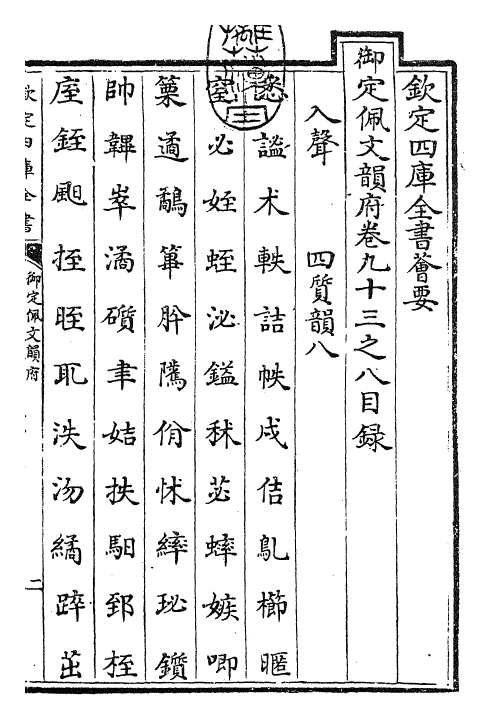 欽定四庫全書薈要
御定佩文韻府卷九十三之八目録
入聲 四質韻八
謐术軼詰帙戌佶鳦櫛暱
窒必姪蛭泌鎰秫苾蟀嫉唧
篥遹鷸篳肸隲佾怵繂珌鑕
帥韠崒潏礩聿姞抶馹郅桎
庢銍颰挃眰耴泆沕繘踤茁
欽定四庫全書
御定佩文韻府
二